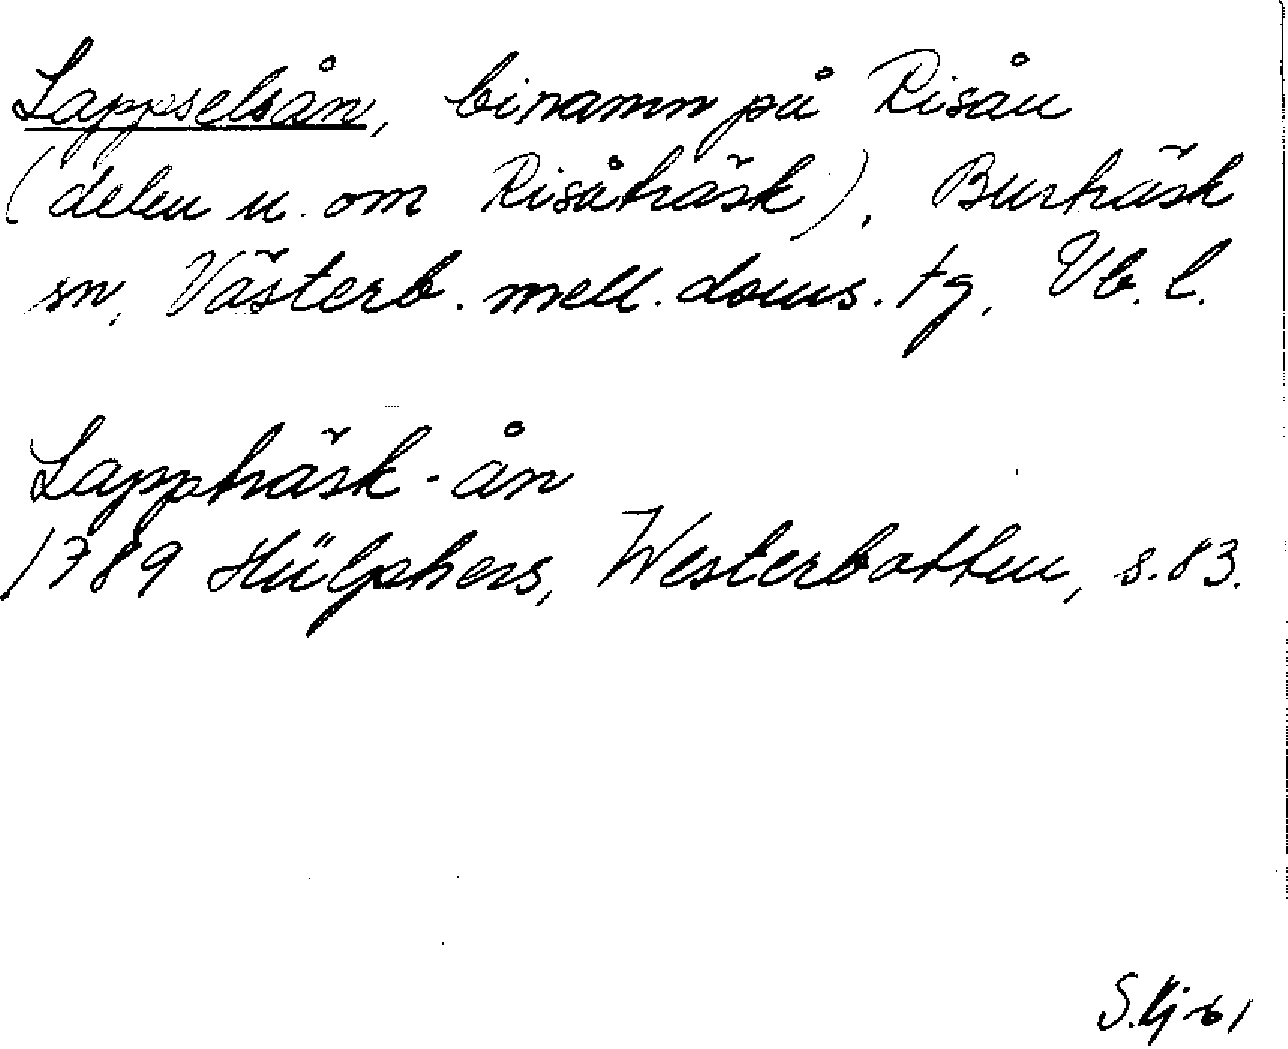 Lappselsån, binamn på Risån
(delen n. om Risåträsk), Burträsk
sn, Västerb. mell. doms. tg, Vb. l.
Lappträsk-ån
1789 Hülphers, Westerbotten, s. 83.
S. Kj -61